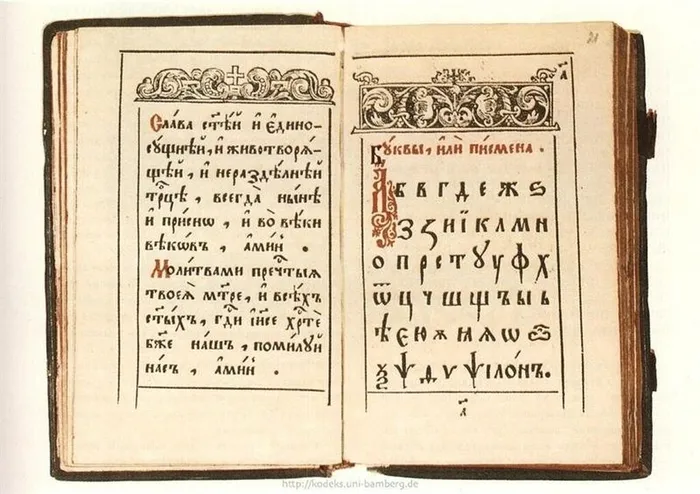 Сла́ва ст҃ѣ́й и҆ є҆ди́но-
сꙋ́щнѣй, и҆ животворѧ́-
щей, и҆ нераздѣ́лнѣй
трⷪ҇цѣ, всегда̀ ны́нѣ
и҆ при́снѡ, и҆ во вѣ́ки
вѣкѡ́въ, а҆ми́нь.
Моли́твами пречⷭ҇тыѧ
твоеѧ̀ мт҃ре, и҆ всѣ́хъ
ст҃ы́хъ, гдⷭ҇и і҆и҃се хрⷭ҇тѐ
бж҃е на́шъ, поми́лꙋй
на́съ, а҆ми́нь.
21
Бꙋ́квы, и҆лѝ пи́смена.
А б в г д е ж ѕ
З ꙁ и ї к л м н
о п р с т ꙋ у ф х
ѿ ц ч ш щ ъ ы ь
ѣ є ю ѫ и ѧ ѡ ѽ
ѯ ѱ ѵ ѱило́нъ.
http://kodeks.uni-bamberg.de